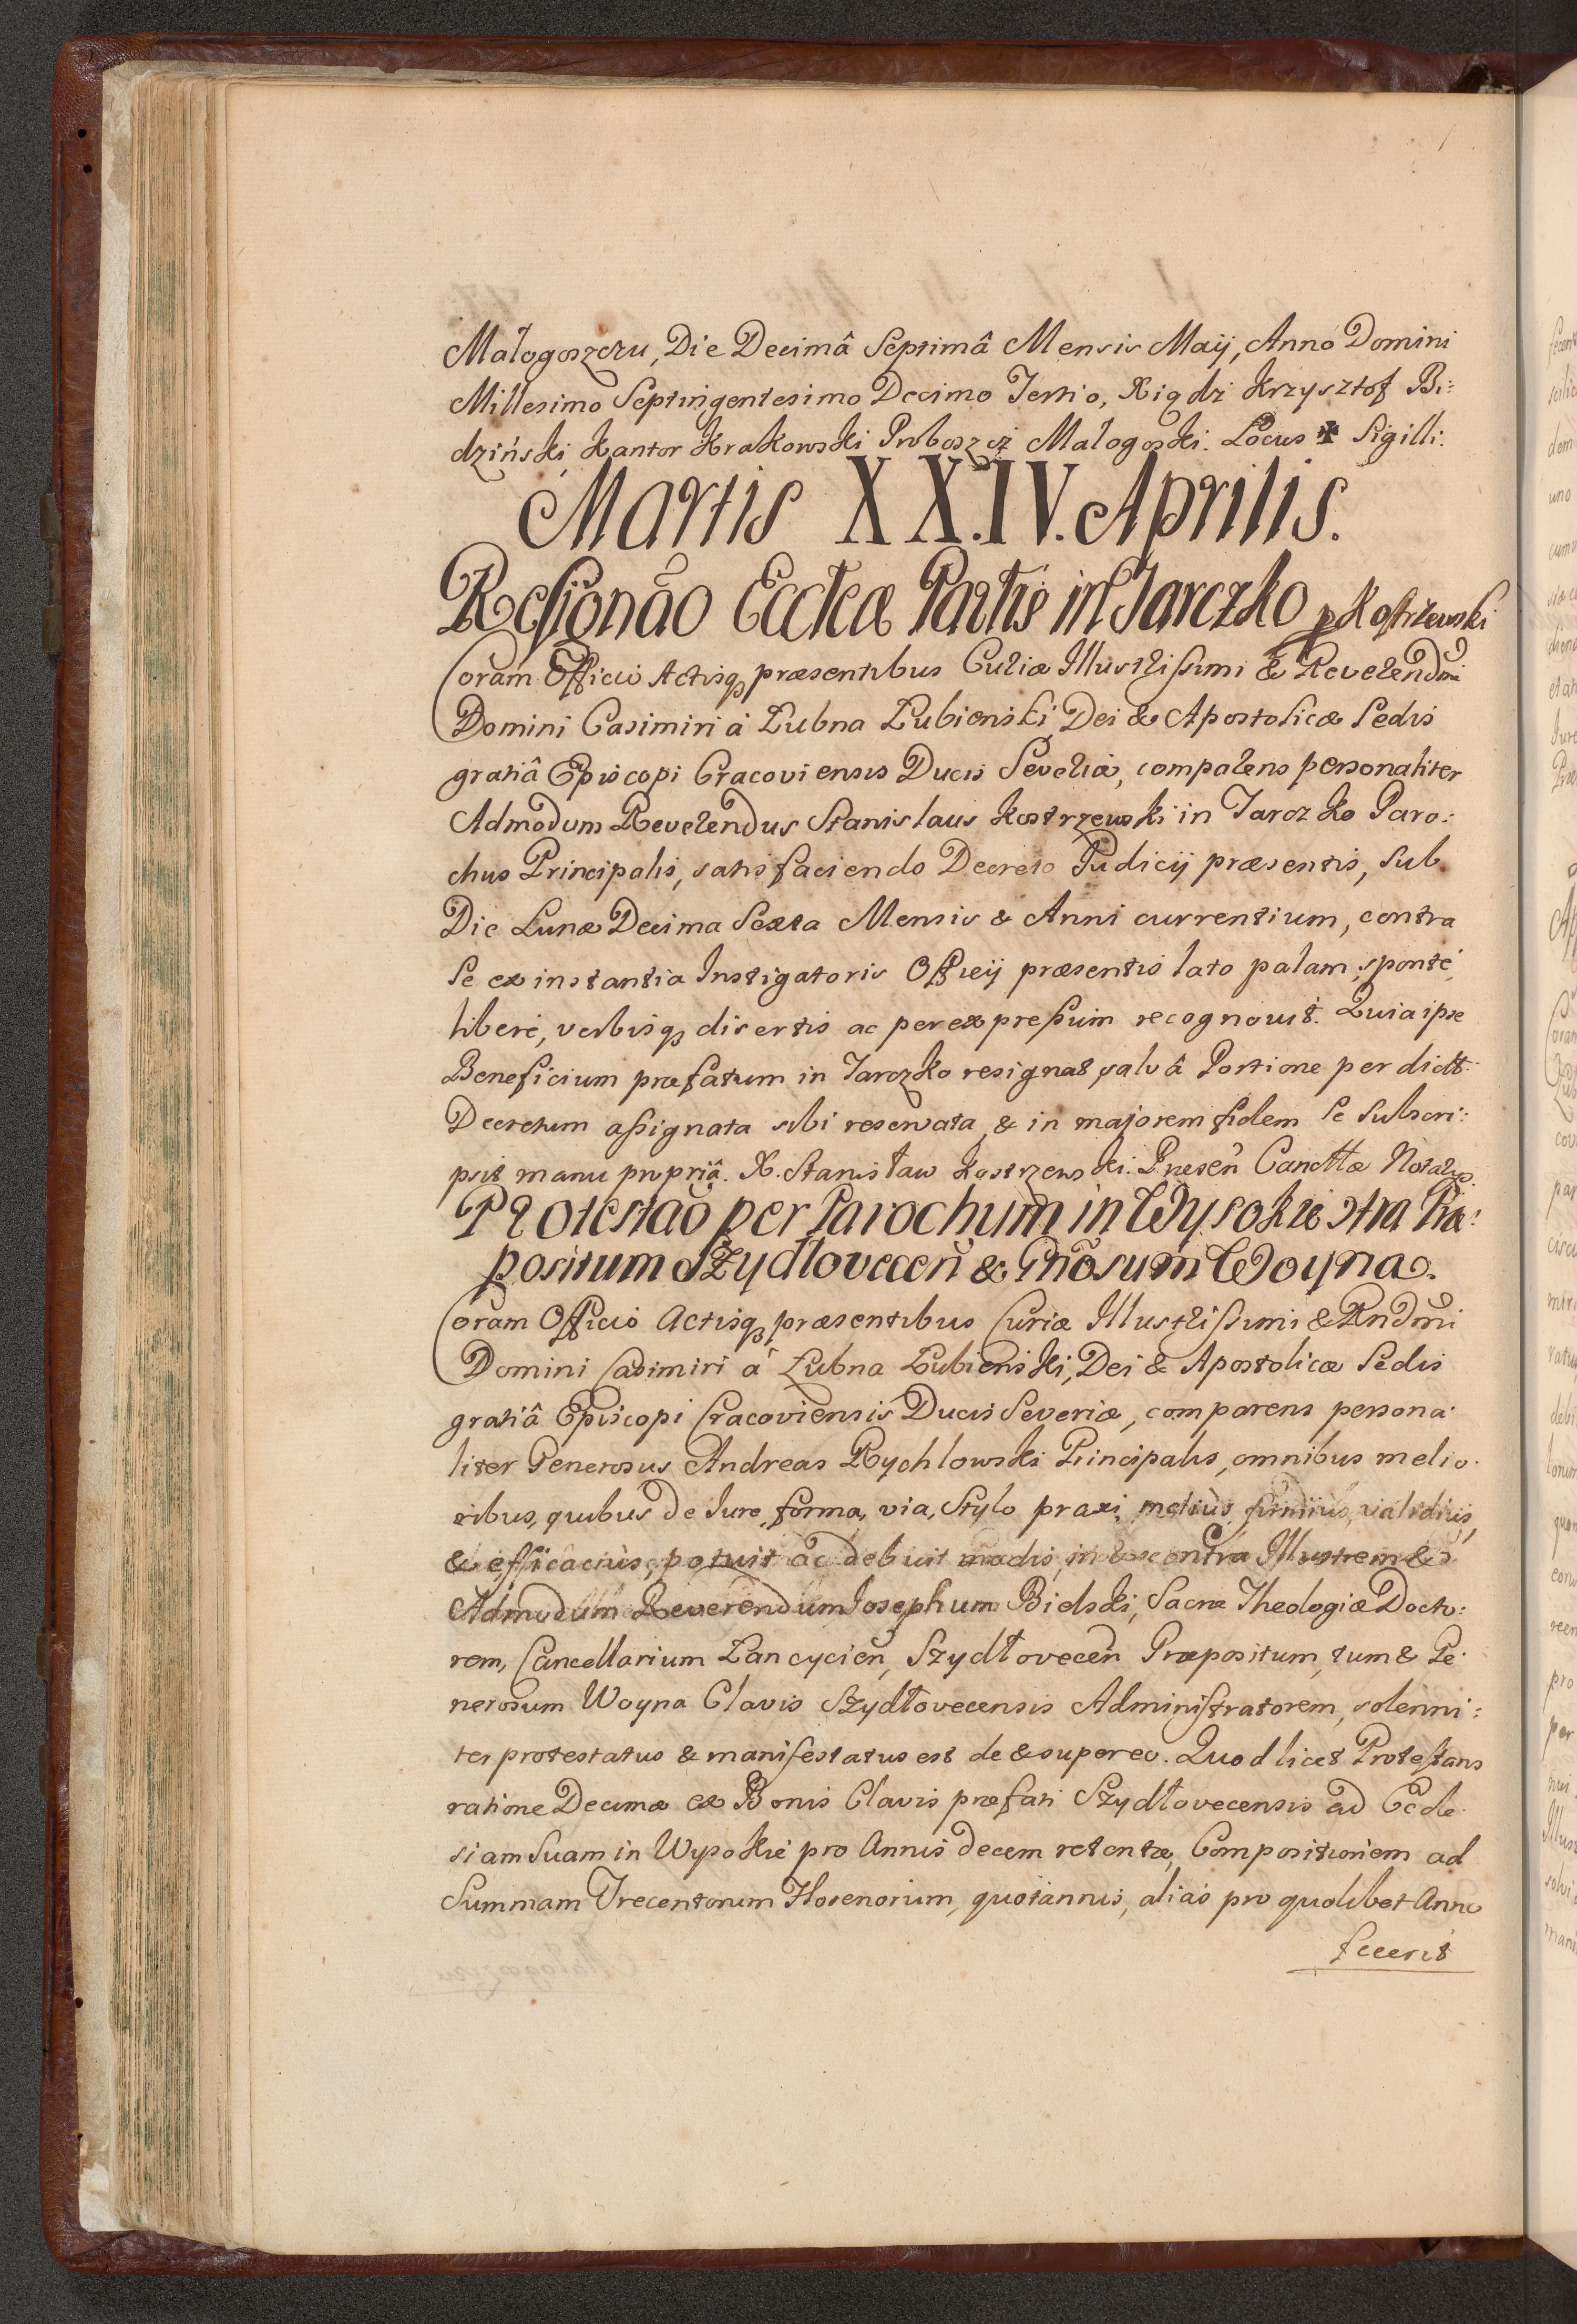 Małogoszczu, Die Decimâ Septimâ Mensis Maij, Annó Domini
Millesimo Septingentesimo Decimo Tertio, Xiądz Krzysztof Bi:
dziński Kantor Krakowski Proboszcz Małogoski. Locus ✠ Sigilli.
Martis XX.IV. Aprilis.
Resignão Eccleæ Partis in Tarczko p Kostrzewski
Coram Officio Actisq, præsentibus Curiæ Illustrissimi & Reverendmi
Domini Casimiri á Łubna Łubienski, Dei & Apostolicæ Sedis
gratiâ Episcopi Cracoviensis Ducis Severiæ, comparens personaliter
Admodum Reverendus Stanislaus Kostrzewski in Tarczko Paro:
chus Principalis, satisfaciendo Decreto Judicij præsentis, sub
Die Lunæ Decima Sexta Mensis & Anni currentium, contra
Se ex instantia Instigatoris Officij præsentis lato palam, sponté,
liberé, verbisq, disertis ac per expressum recognovit. Quia ipse
Beneficium præfatum in Tarczko resignat salvâ Portione per dictt:
Decretum assignata sibi reservata, & in majorem fidem Se Subscri:
psit manu propriâ. X. Stanisław Kostrzewski. Presen Cancttæ Notarys.
Protestaõ per Parochum in Wysokie ɔtra Præ:
positum Szydłovecen & Gnõsum Woyna.
Coram Officio Actisq, præsentibus Curiæ Illustrissimi & Rndmi
Domini Casimiri á Łubna Łubienski, Dei & Apostolicæ Sedis
gratiâ Episcopi Cracoviensis Ducis Severiæ, comparens persona:
liter Generosus Andreas Rychlowski Principalis, omnibus melio:
ribus, quibus de Jure, forma, via, Stylo praxi, meliùs, firmiùs, validiùs,
& efficaciùs, potuit ac debuit modis, in & contra Illustrem &
Admodum Reverendum Josephum Bielski, Sacræ Theologiæ Docto:
rem, Cancellarium Łancycien, Szydłovecen Præpositum, tum & Ge:
nerosum Woyna Clavis Szydłovecensis Administratorem, solenni:
ter protestatus & manifestatus est de & super eo. Quod licet Protestans
ratione Decimæ ex Bonis Clavis præfati Szydłovecensis ad Eccle:
siam Suam in Wysokie pro Annis decem retentæ, Compositionem ad
Summam Trecentorum Florenorum, quotannis, aliàs pro quolibet Anno
fecerit